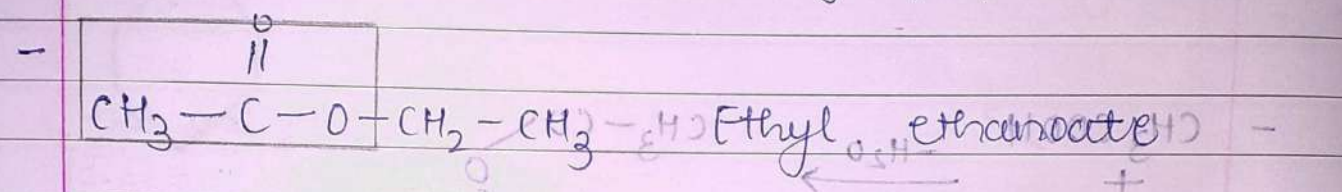 - O
||
CH₃ - C - O - CH₂ - CH₃ Ethyl ethanoate